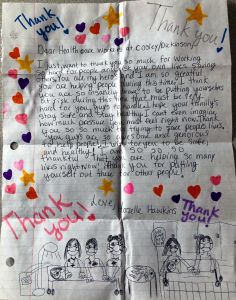 Thank you!
Thank you!
Dear Healthcare workers at Cooley Dickinson,
I just want to thank you so much for working
so hard for people and risk your own lives saving
others. You are my heros and I am so greatful
you are helping people during this time. I think
you are so insanely brave to be putting yourselves
at risk during this time that must be really
hard for you. I hope your family's
stay safe and stay healthy. I can't even imagine
how much pressure you must feel right now. Thank
you so so much for trying to save people lives,
you guys are so awesome and generous
to help people. I for you to be safe,
and healthy. I am so so so so
thankful that you are helping so many
lives right now. Thank you for putting
yourself out there for other people!
Love,
Hawkins
Thank
you!
Thank
you!